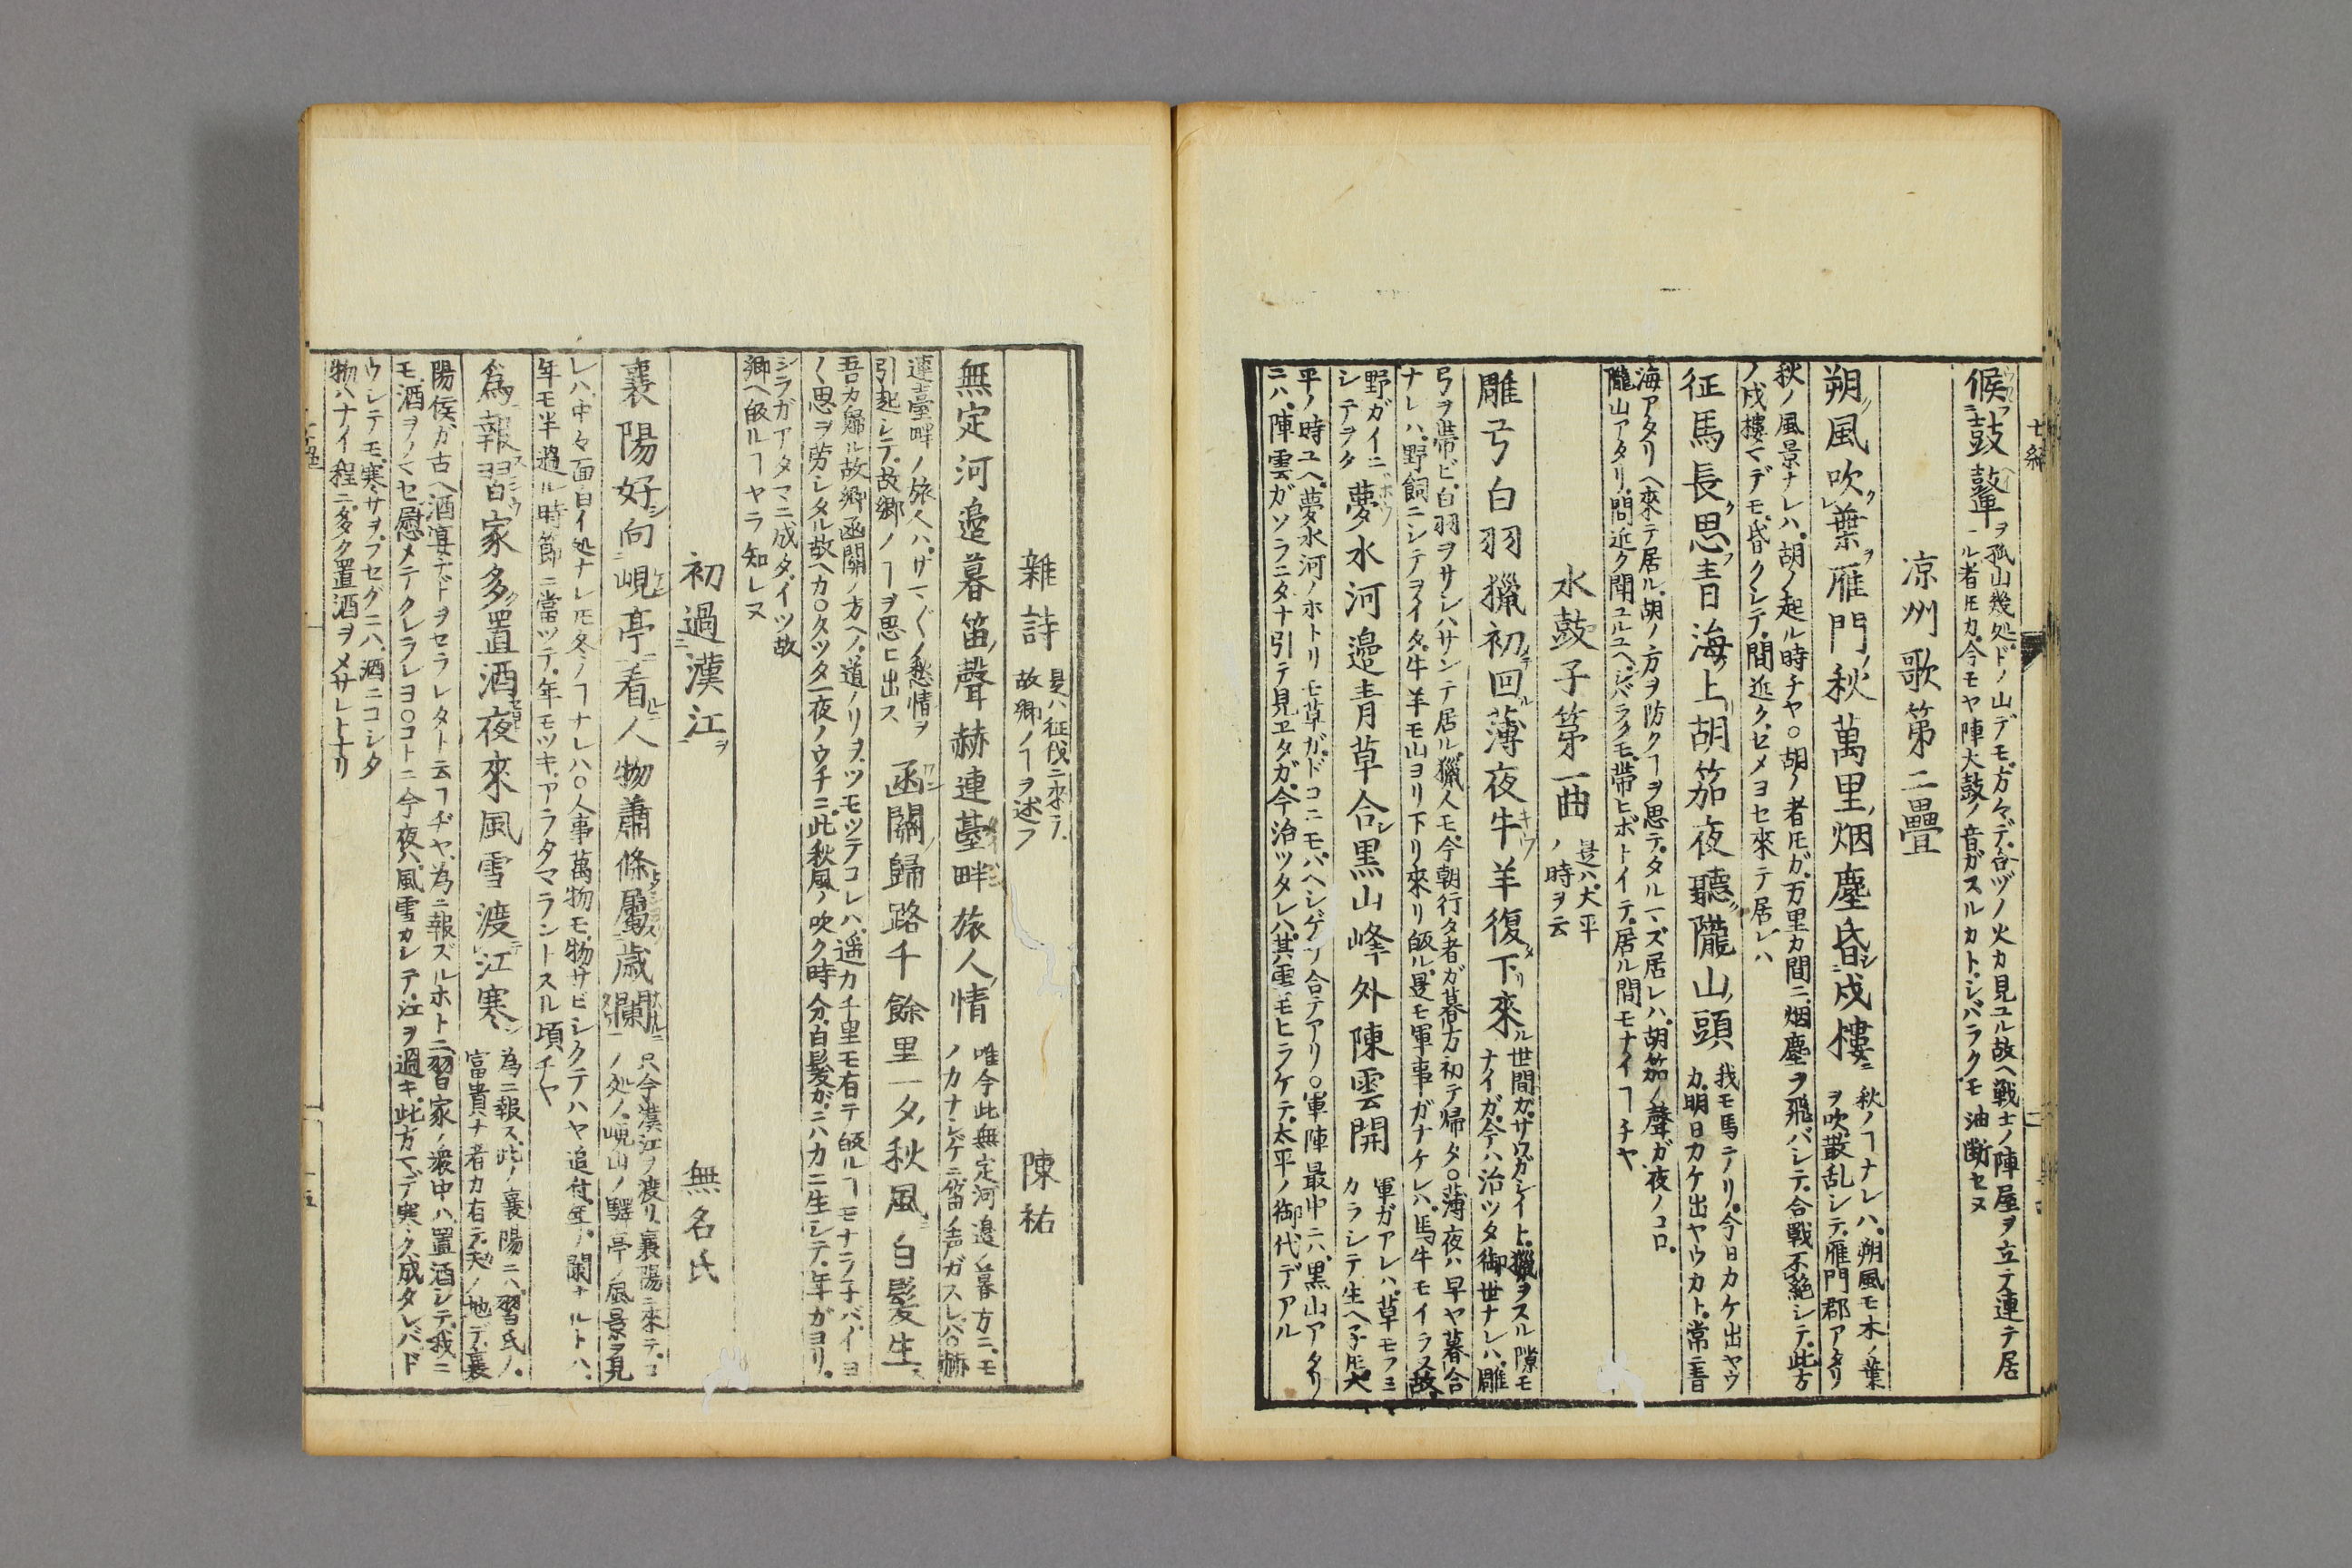 七絶
候鼓鼙
ヲ孤山幾処ドノ山デモ方々デ合ヅノ火カ見ユル故ヘ戦士ノ陣屋ヲ立テ連テ居
ル者𪜈カ今モヤ陣大鼓ノ音ガスルカトシバラクモ油断セヌ
凉州歌第二疊
朔風吹葉雁門秋萬里烟塵昏戍樓
秋ノヿナレハ朔風モ木ノ葉
ヲ吹散乱シテ雁門郡アタリ
秋ノ風景ナレハ胡ノ起ル時チヤ○胡ノ者𪜈ガ万里カ間ニ烟塵ヲ飛バシテ合戰不絶シテ此方
ノ戍樓マデモ昏クシテ間近クセメヨセ來テ居レハ
征馬長思青海上胡笳夜聽隴山頭
我モ馬ニノリ今日カケ出ヤウ
カ明日カケ出ヤウカト常ニ青
海アタリヘ來テ居ル胡ノ方ヲ防クヿヲ思テタルマズ居レハ胡笳ノ聲ガ夜ノコロ
隴山アタリ間近ク聞ユルユヘシバラクモ帯ヒボトイテ居ル間モナイヿチヤ
水鼓子第一曲
是ハ大平
ノ時ヲ云
雕弓白羽獵初回薄夜牛羊復下來
ル世間ガサウガシイト獵ヲスル隙モ
ナイガ今ハ治ツタ御世ナレハ雕
弓ヲ帯ビ白羽ヲサシハサンテ居ル獵人モ今朝行タ者ガ暮方初テ帰タ○薄夜ハ早ヤ暮合
ナレハ野飼ニシテヲイタ牛羊モ山ヨリ下リ來リ皈ル是モ軍事ガナケレハ馬牛モイラヌ故
野ガイニ
シテヲタ
夢水河邉青草合黒山峰外陳雲開
軍ガアレハ草モフミ
カラシテ生ヘ子𪜈大
平ノ時ユヘ夢水河ノホトリモ草ガドコニモハヘシゲツ合テアリ○軍陣最中ニハ黒山アタリ
ニハ陣雲ガソラニタナ引テ見エタガ今治ツタレハ其雲モヒラケテ太平ノ御代デアル
雜詩
是ハ征伐ニ來テ
故郷ノヿヲ述フ
陳祐
無定河邉暮笛聲赫連臺畔旅人情
唯今此無定河邉ノ暮方ニモ
ノカナシゲニ笛ノ声ガスレバ○赫
連臺畔ノ旅人ハサマ〲ノ愁情ヲ
引起シテ故郷ノヿヲ思ヒ出ス
函關歸路千餘里一夕秋風白髪生
吾カ歸ル故郷函關ノ方ヘノ道ノリヲツモツテコレハ遥カ千里モ有テ皈ルヿモナラ子バイヨ
〱思ヲ労シタル故ヘカ○久ツタ一夜ノウチニ此秋風ノ吹ク時分白髪ガニハカニ生シテ年ガヨリ
シラガアタマニ成タイツ故
郷ヘ皈ルヿヤラ知レヌ
初過漢江
無名氏
襄陽好向峴亭看人物蕭條屬歳闌
只今漢江ヲ渡リ襄陽ニ來テコ
ノ処ノ峴山ノ驛亭ノ風景ヲ見
レハ中々面白イ処ナレ𪜈冬ノヿナレハ○人事萬物モ物サビシクテハヤ追付年ノ闌ナルトハ
年モ半過ル時節ニ當ツテ年モツキアラタマラントスル頃チヤ
爲報習家多置酒夜來風雪渡江寒
為ニ報ス此ノ襄陽ニハ習氏ノ
富貴ナ者カ有テ天ノ地デ襄
陽侯ガ古ヘ酒宴ナドヲセラレタト云ヿヂヤ為ニ報ズルホトニ習家ノ衆中ハ置酒シテ我ニ
モ酒ヲノマセ慰メテクレラレヨ○コトニ今夜ハ風雪カシテ江ヲ過キ此方マデ寒ク成タレバド
ウシテモ寒サヲフセグニハ酒ニコシタ
物ハナイ程ニ多ク置酒ヲメサレトナリ